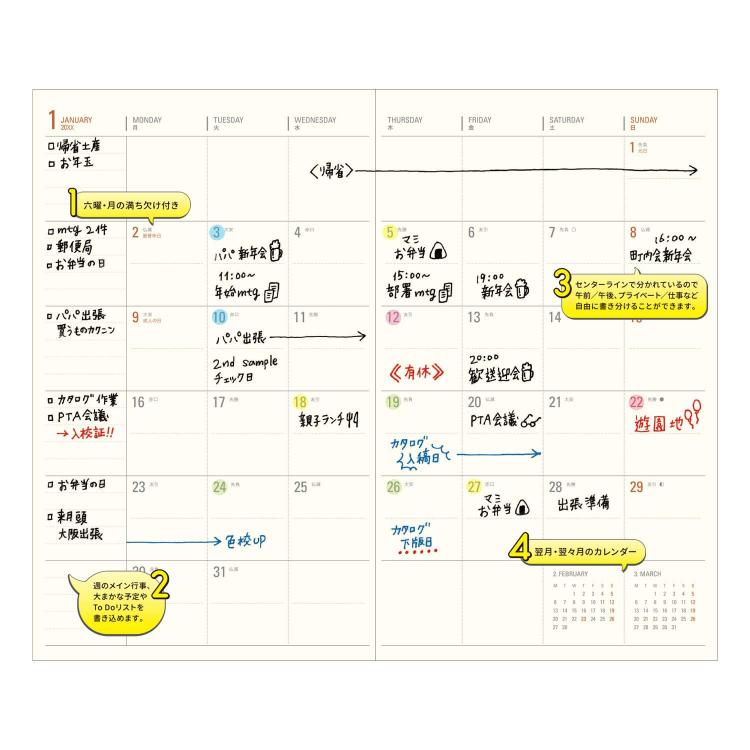 1 JANUARY
20XX
MONDAY
月
TUESDAY
火
WEDNESDAY
水
THURSDAY
木
FRIDAY
金
SATURDAY
土
SUNDAY
日
□帰省土産
□お年玉
〈帰省〉
1 先負
元日
1 六曜・月の満ち欠け付き
□mtg 2件
□郵便局
□お弁当の日
2 仏滅
振替休日
3 大安
パパ新年会
11:00~
年始mtg
4 赤口
5 先勝
マミ
お弁当
15:00~
部署mtg
6 友引
19:00~
新年会
7 先負
8 仏滅
16:00~
町内会新年会
3 センターラインで分かれているので
午前/午後、プライベート/仕事など
自由に書き分けることができます。
□パパ出張
買うものカクニン
9 大安
成人の日
10 赤口
パパ出張
2nd sample
チェック日
11 先勝
12
《有休》
13
20:00
歓送迎会
14
□カタログ作業
□PTA会議
→入校証!!
16 赤口
17 先勝
18 友引
親子ランチ
19 先負
カタログ
入稿日
20 仏滅
PTA会議
21 大安
22 先勝
遊園地
□お弁当の日
□来月頭
大阪出張
23 友引
24 先負
色校UP
25 仏滅
26 大安
カタログ
下版日
27 赤口
マミ
お弁当
28 先勝
出張準備
29 友引
4 翌月・翌々月のカレンダー
2 週のメイン行事、
大まかな予定や
To Doリストを
書き込めます。
31 仏滅
2 FEBRUARY
M T W T F S S
1 2 3 4 5
6 7 8 9 10 11 12
13 14 15 16 17 18 19
20 21 22 23 24 25 26
27 28
3 MARCH
M T W T F S S
1 2 3 4 5
6 7 8 9 10 11 12
13 14 15 16 17 18 19
20 21 22 23 24 25 26
27 28 29 30 31